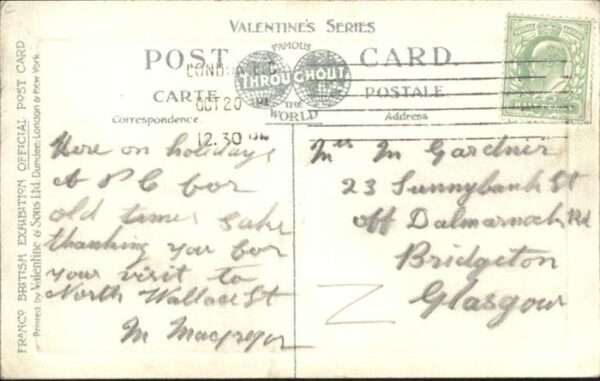 VALENTINE'S SERIES
POST CARD.
FAMOUS
THROUGHOUT
THE
WORLD
CARTE POSTALE
Correspondence
Address
LONDON
OCT 20
12.30 PM
FRANCO BRITISH EXHIBITION OFFICIAL POST CARD
Printed by Valentine & Sons Ltd. Dundee, London & New York.
Here on holidays
A P C for
old times sake
thanking you for
your visit to
North Wallace St
M Macgregor
Mrs M Gardner
23 Sunnybank St
off Dalmarnock Rd
Bridgeton
Glasgow